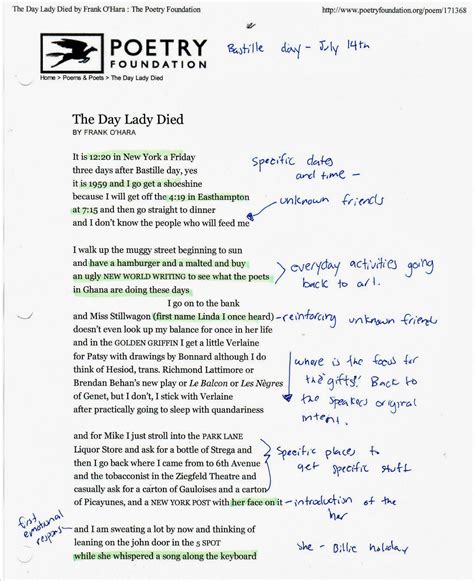 The Day Lady Died by Frank O'Hara : The Poetry Foundation
http://www.poetryfoundation.org/poem/171368
POETRY
FOUNDATION
Bastille day - July 14th
Home > Poems & Poets > The Day Lady Died
The Day Lady Died
BY FRANK O'HARA
It is 12:20 in New York a Friday
three days after Bastille day, yes
it is 1959 and I get a shoeshine
because I will get off the 4:19 in Easthampton
at 7:15 and then go straight to dinner
and I don't know the people who will feed me
specific dates
and time -
unknown friends
I walk up the muggy street beginning to sun
and have a hamburger and a malted and buy
an ugly NEW WORLD WRITING to see what the poets
in Ghana are doing these days
everyday activities going
back to art.
I go on to the bank
and Miss Stillwagon (first name Linda I once heard)
- reinforcing unknown friends
doesn't even look up my balance for once in her life
and in the GOLDEN GRIFFIN I get a little Verlaine
for Patsy with drawings by Bonnard although I do
think of Hesiod, trans. Richmond Lattimore or
Brendan Behan's new play or Le Balcon or Les Nègres
of Genet, but I don't, I stick with Verlaine
after practically going to sleep with quandariness
where is the focus for
the "gifts". Back to
the speakers original
intent.
and for Mike I just stroll into the PARK LANE
Liquor Store and ask for a bottle of Strega and
then I go back where I came from to 6th Avenue
and the tobacconist in the Ziegfeld Theatre and
casually ask for a carton of Gauloises and a carton
of Picayunes, and a NEW YORK POST with her face on it
specific places to
get specific stuff
- introduction of the
her
first
emotional
respons
and I am sweating a lot by now and thinking of
leaning on the john door in the 5 SPOT
while she whispered a song along the keyboard
she - Billie holiday